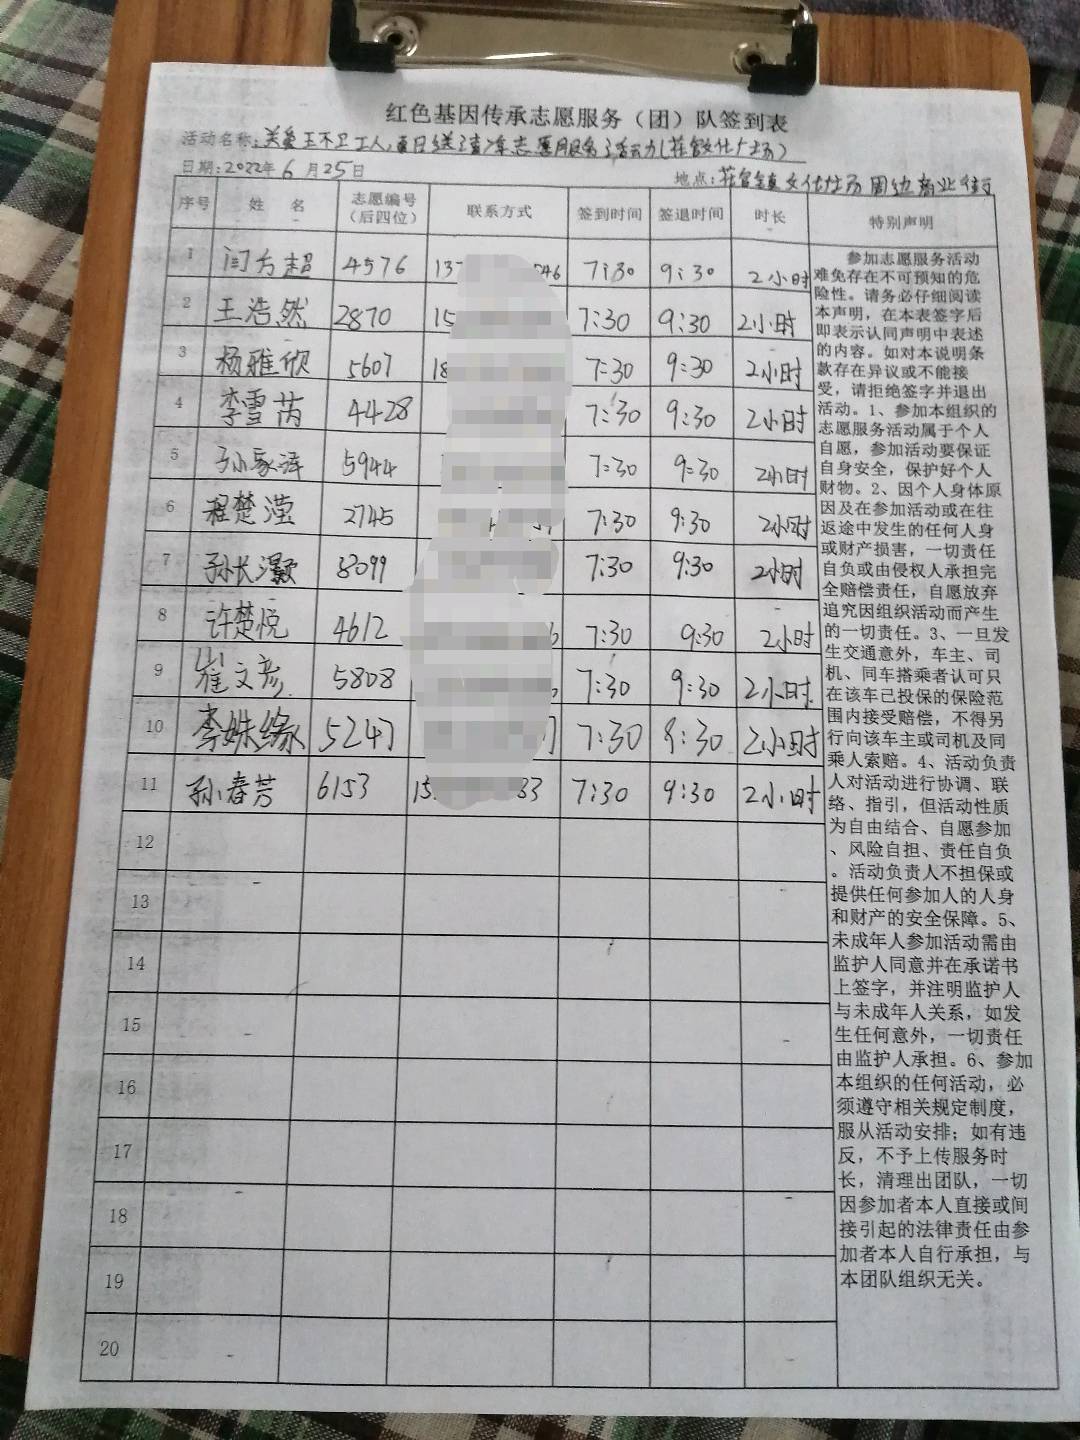 红色基因传承志愿服务（团）队签到表
活动名称：关爱环卫工人，夏日送清凉志愿服务活动（莊寨文化广场）
日期：2022年6月25日
地点：莊寨镇文化广场周边商业街
序号 姓 名 志愿编号（后四位） 联系方式 签到时间 签退时间 时长 特别声明
1 闫方超 4576 13 546 7:30 9:30 2小时
2 王浩然 2870 15 7:30 9:30 2小时
3 杨雅欣 5607 18 7:30 9:30 2小时
4 李雪芮 4428 7:30 9:30 2小时
5 孙家泽 5944 7:30 9:30 2小时
6 程楚滢 2745 7:30 9:30 2小时
7 孙长灏 8099 7:30 9:30 2小时
8 许楚悦 4612 6 7:30 9:30 2小时
9 崔文彦 5808 7:30 9:30 2小时
10 李姝缘 5247 7 7:30 9:30 2小时
11 孙春芳 6153 15 33 7:30 9:30 2小时
12
13
14
15
16
17
18
19
20
参加志愿服务活动
难免存在不可预知的危
险性。请务必仔细阅读
本声明，在本表签字后
即表示认同声明中表述
的内容。如对本说明条
款存在异议或不能接
受，请拒绝签字并退出
活动。1、参加本组织的
志愿服务活动属于个人
自愿，参加活动要保证
自身安全，保护好个人
财物。2、因个人身体原
因及在参加活动或在往
返途中发生的任何人身
或财产损害，一切责任
自负或由侵权人承担完
全赔偿责任，自愿放弃
追究因组织活动而产生
的一切责任。3、一旦发
生交通意外，车主、司
机、同车搭乘者认可只
在该车已投保的保险范
围内接受赔偿，不得另
行向该车主或司机及同
乘人索赔。4、活动负责
人对活动进行协调、联
络、指引，但活动性质
为自由结合、自愿参加
、风险自担、责任自负
。活动负责人不担保或
提供任何参加人的人身
和财产的安全保障。5、
未成年人参加活动需由
监护人同意并在承诺书
上签字，并注明监护人
与未成年人关系，如发
生任何意外，一切责任
由监护人承担。6、参加
本组织的任何活动，必
须遵守相关规定制度，
服从活动安排；如有违
反，不予上传服务时
长，清理出团队，一切
因参加者本人直接或间
接引起的法律责任由参
加者本人自行承担，与
本团队组织无关。